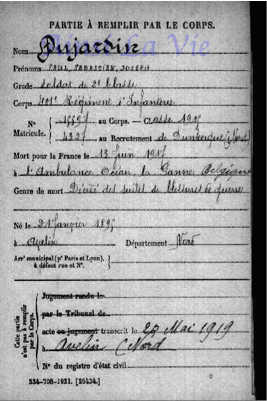 PARTIE À REMPLIR PAR LE CORPS.
Nom Dujardin
Prénoms PAUL SEBASTIEN JOSEPH
Grade Soldat de 2e Classe
Corps 401e Régiment d'Infanterie
N° Matricule. au Corps. — Classe
4327 au Recrutement de Dunkerque (Nord)
Mort pour la France le 13 Juin
à l'Ambulance Océan, La Panne Belgique
Genre de mort Décédé des suites de blessures de guerre
Né le 21 Janvier
à Avelin Département Nord
Arrt municipal (pr Paris et Lyon), à défaut rue et N°.
Cette partie n'est pas à remplir par le Corps.
Jugement rendu le
par le Tribunal de
acte ou jugement transcrit le 29 Mai 1919
à Avelin (Nord)
N° du registre d'état civil
534-708-1921. [26434.]